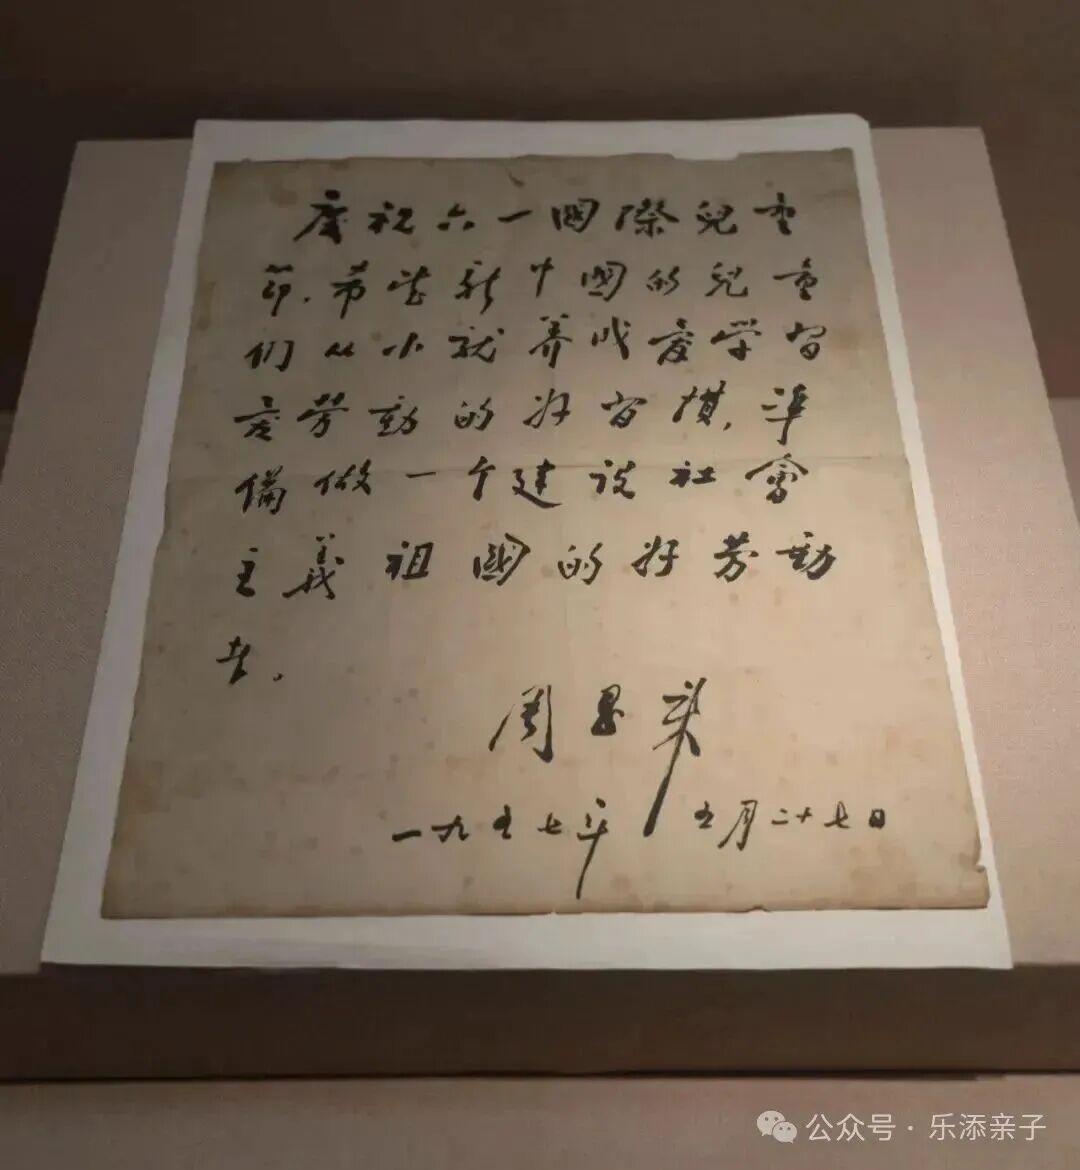 庆祝六一國際兒童
節，希望新中國的兒童
们从小就养成爱学習
爱劳動的好習慣，準
備做一个建设社會
主義祖國的好劳動
者。
周恩来
一九五七年 五月二十七日
公众号·乐添亲子